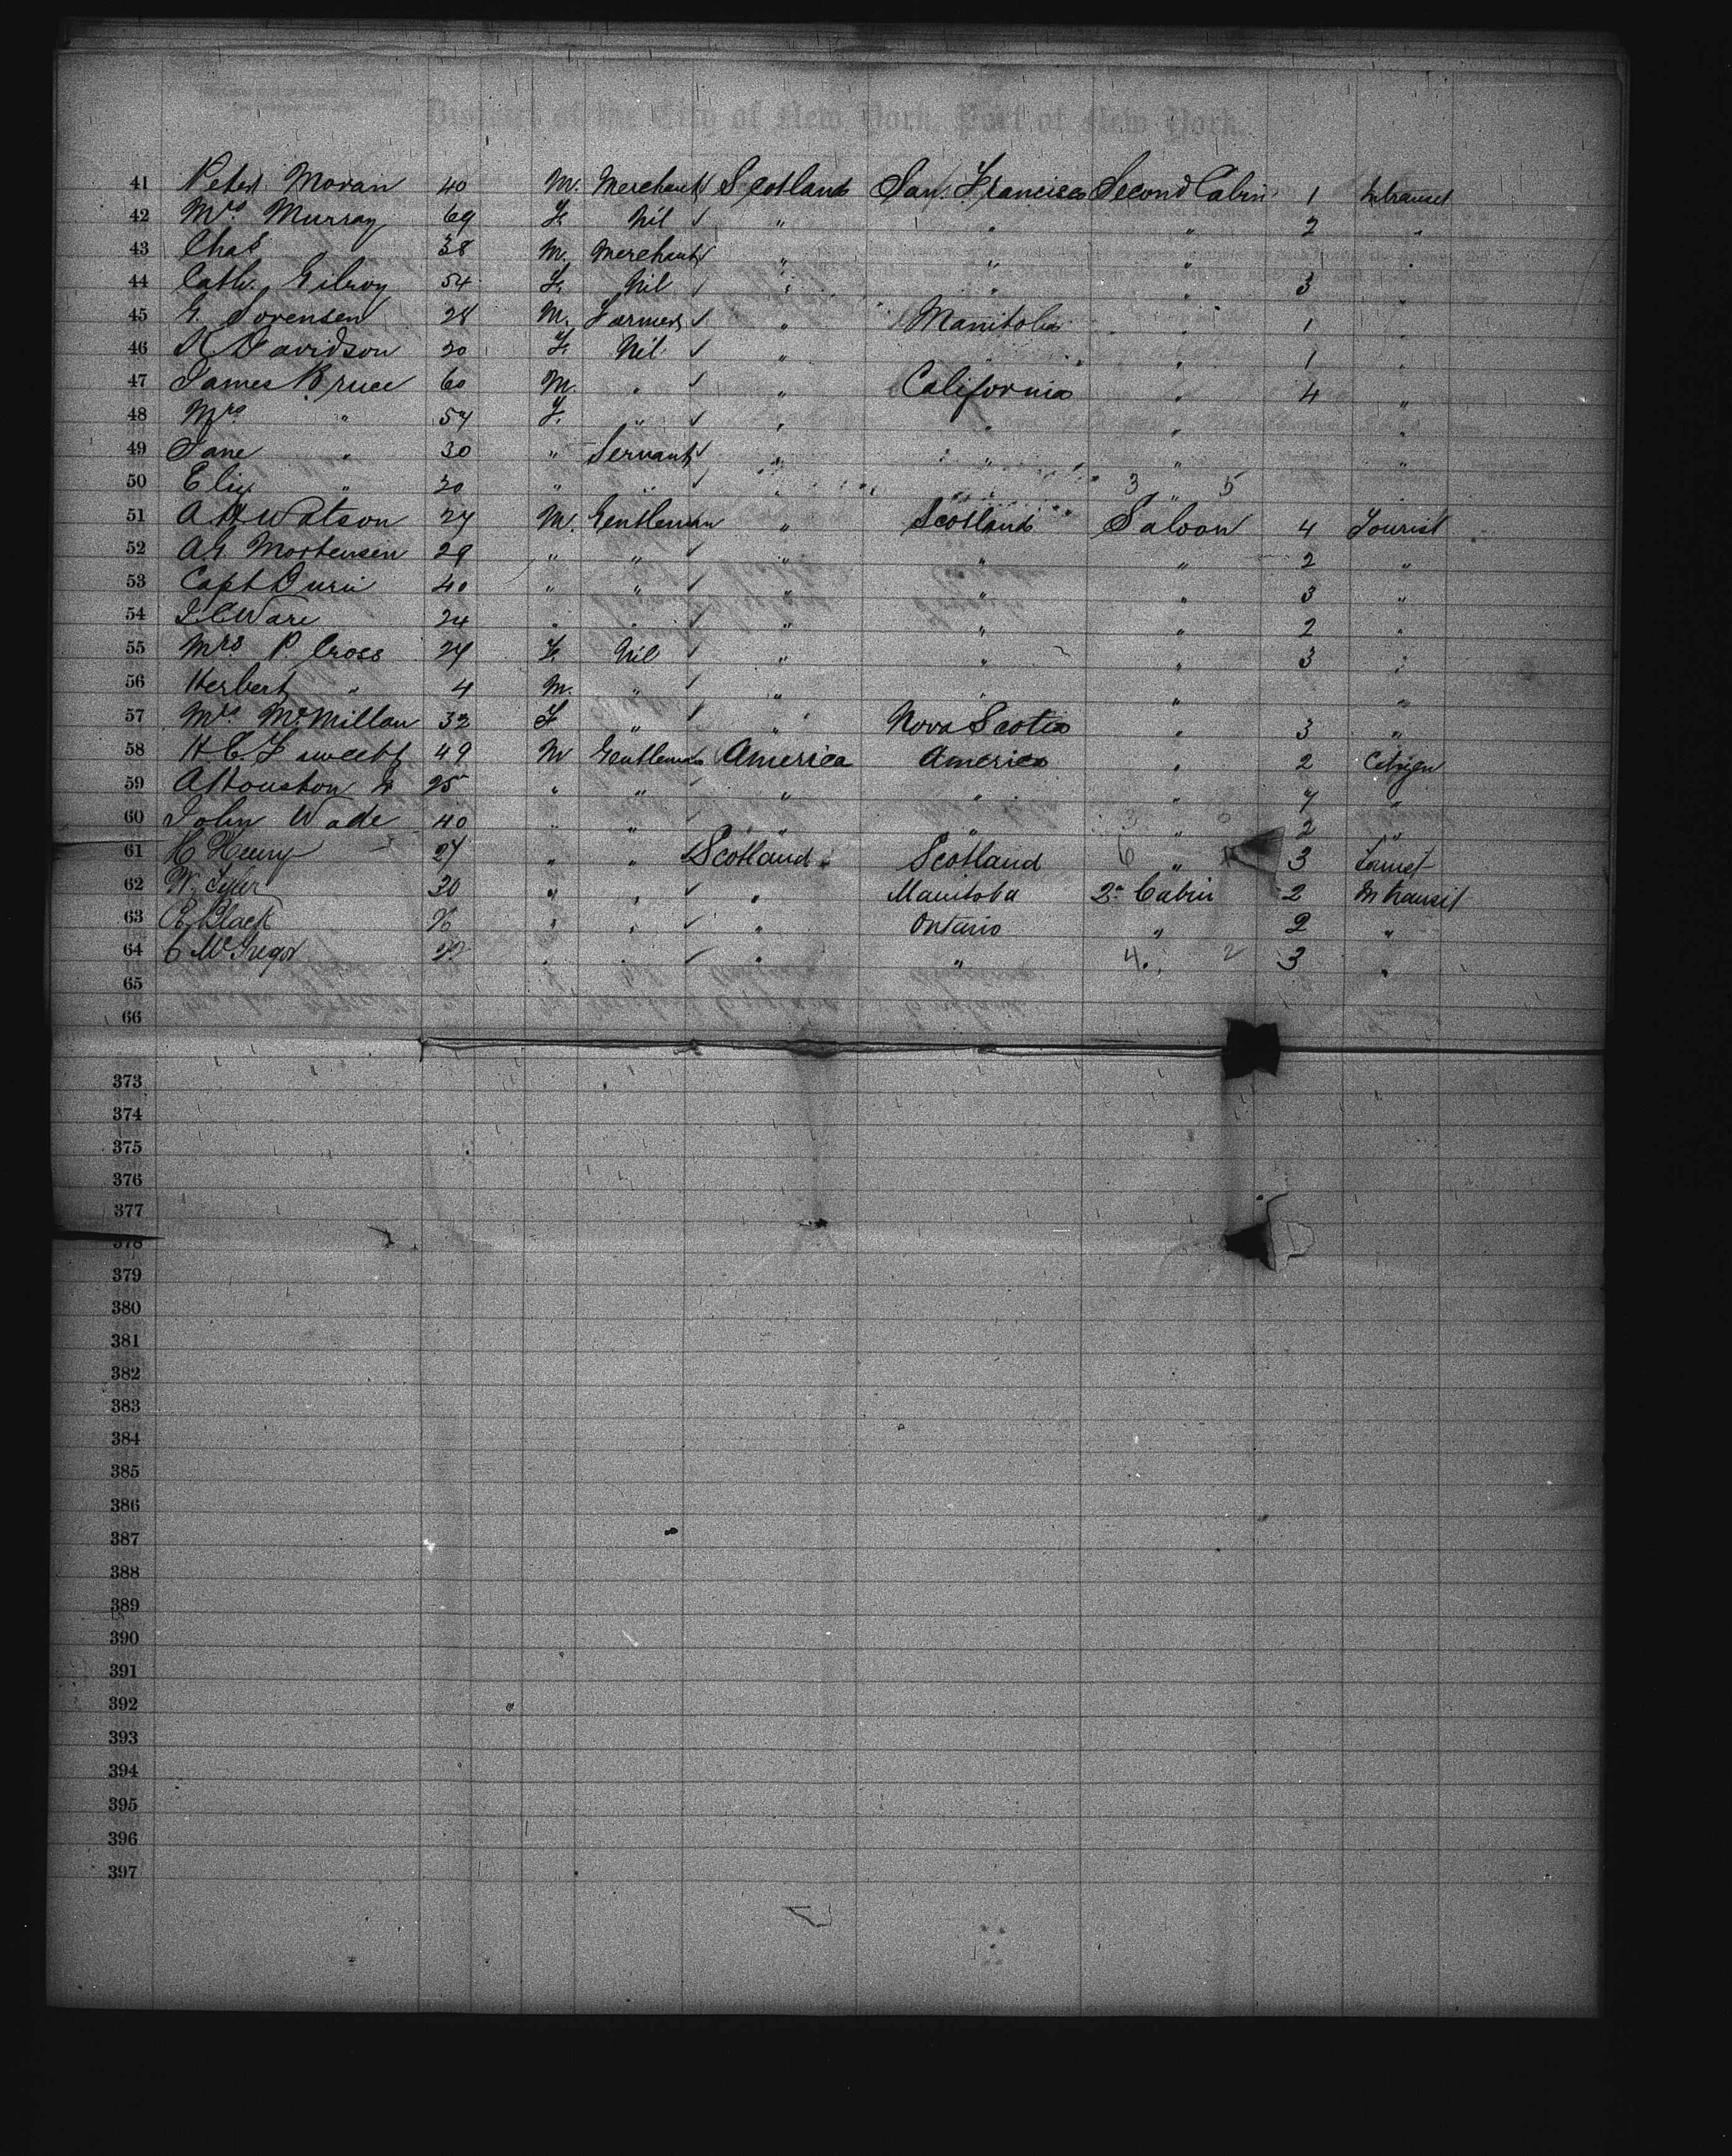 District of the City of New York, Port of New York.
41 Peter Moran 40 M. Merchant Scotland San Francisco Second Cabin 1 In transit
42 Mrs Murray 69 F. Nil " " " 2 "
43 Chas 38 M. Merchant " " " "
44 Cath. Gilroy 54 F. Nil " " " 3 "
45 G. Sorensen 28 M. Farmer " Manitoba " 1 "
46 Davidson 20 F. Nil " " " 1 "
47 James Bruce 60 M. " " California " 4 "
48 Mrs " 54 F. " " " " "
49 Jane " 30 " Servant " " " "
50 Eliz " 20 " " " " 3 " 5
51 A Watson 24 M. Gentleman " Scotland Saloon 4 Tourist
52 A.G. Mortensen 29 " " " " " 2 "
53 Capt 40 " " " " " 3 "
54 Ware 24 " " " " " 2 "
55 Mrs P. Cross 24 F. Nil " " " 3 "
56 Herbert " 4 M. " " " " "
57 Mrs McMillan 32 F " " Nova Scotia " 3 "
58 H.C. 49 M Gentleman America America " 2 Citizen
59 A Houston 25 " " " " " 4 "
60 John Wade 40 " " " " 3 " 0 2 "
61 H Henry 24 " " Scotland Scotland 6 " 3 Tourist
62 W. 30 " " " Manitoba 2nd Cabin 2 In transit
63 Black 26 " " " Ontario " 2 "
64 C McGregor 22 " " " " 4 " 2 3 "
65
66
373
374
375
376
377
378
379
380
381
382
383
384
385
386
387
388
389
390
391
392
393
394
395
396
397